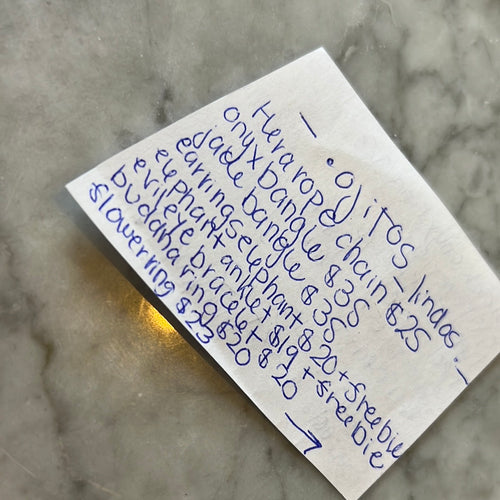 - .ojitos-lindos.-
Hera rope chain - $25
onyx bangle $35
jade bangle $35
earrings elephant $20 + freebie
elephant anklet $19 + freebie
evileye bracelet $20
buddha ring $20
flower ring $23